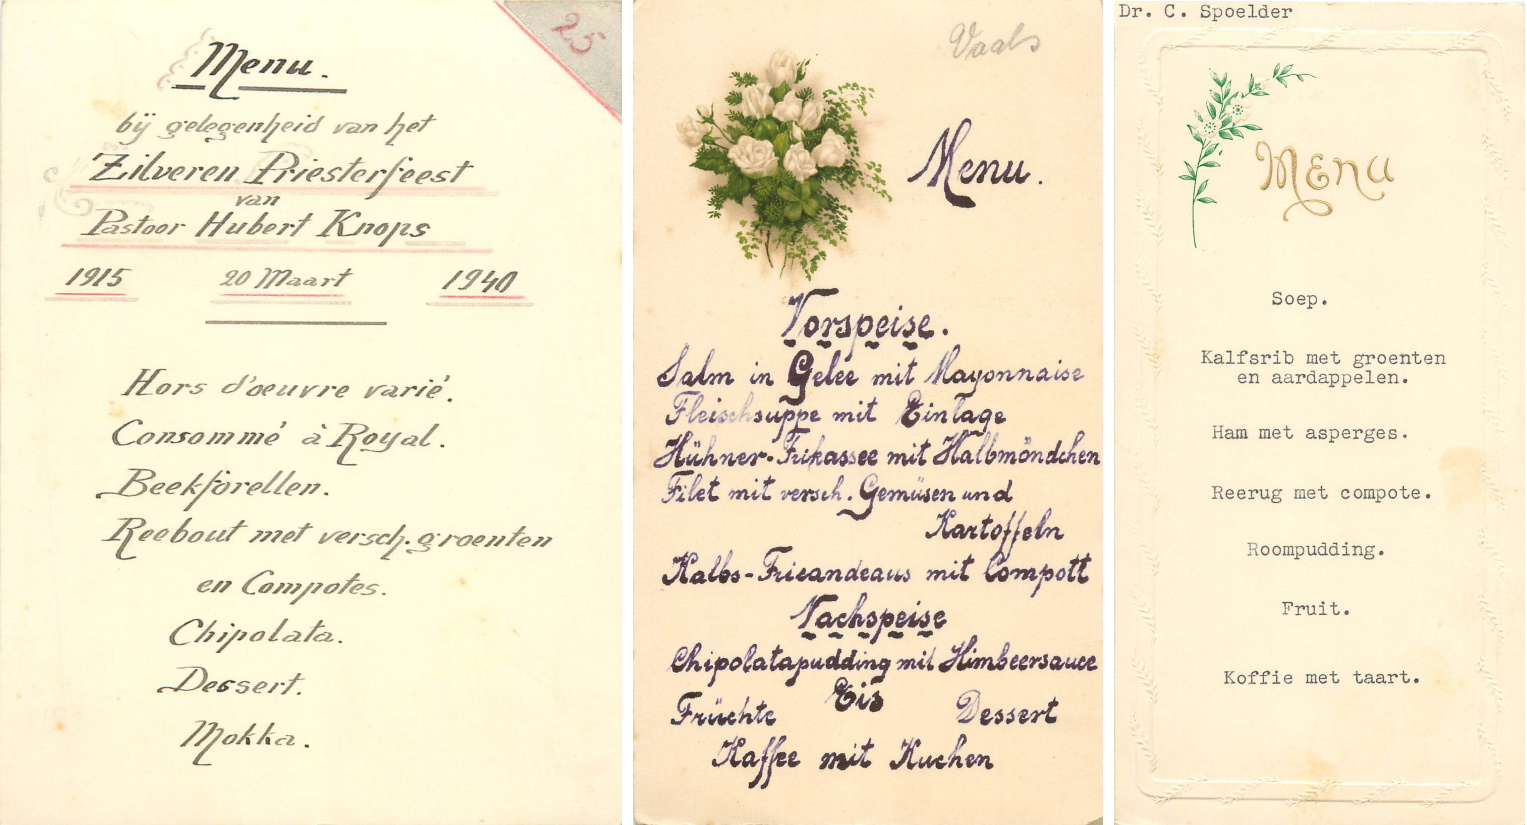 25
Menu.
bij gelegenheid van het
Zilveren Priesterfeest
van
Pastoor Hubert Knops
1915 20 Maart 1940
Hors d'oeuvre varié.
Consommé à Royal.
Beekforellen.
Reebout met versch. groenten
en Compotes.
Chipolata.
Dessert.
Mokka.
Vaals
Menu.
Vorspeise.
Salm in Gelee mit Mayonnaise
Fleischsuppe mit Einlage
Hühner-Frikassee mit Halbmöndchen
Filet mit versch. Gemüsen und
Kartoffeln
Kalbs-Frieandeaus mit Compott
Nachspeise
Chipolatapudding mit Himbeersauce
Eis
Früchte Dessert
Kaffee mit Kuchen
Dr. C. Spoelder
MENU
Soep.
Kalfsrib met groenten
en aardappelen.
Ham met asperges.
Reerug met compote.
Roompudding.
Fruit.
Koffie met taart.